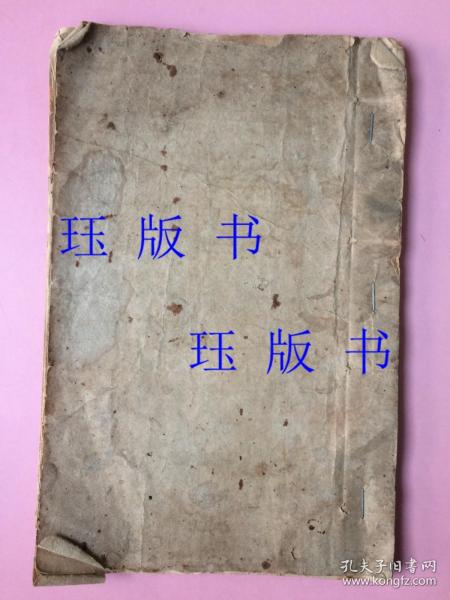 珏版书
珏版书
孔夫子旧书网
www.kongfz.com